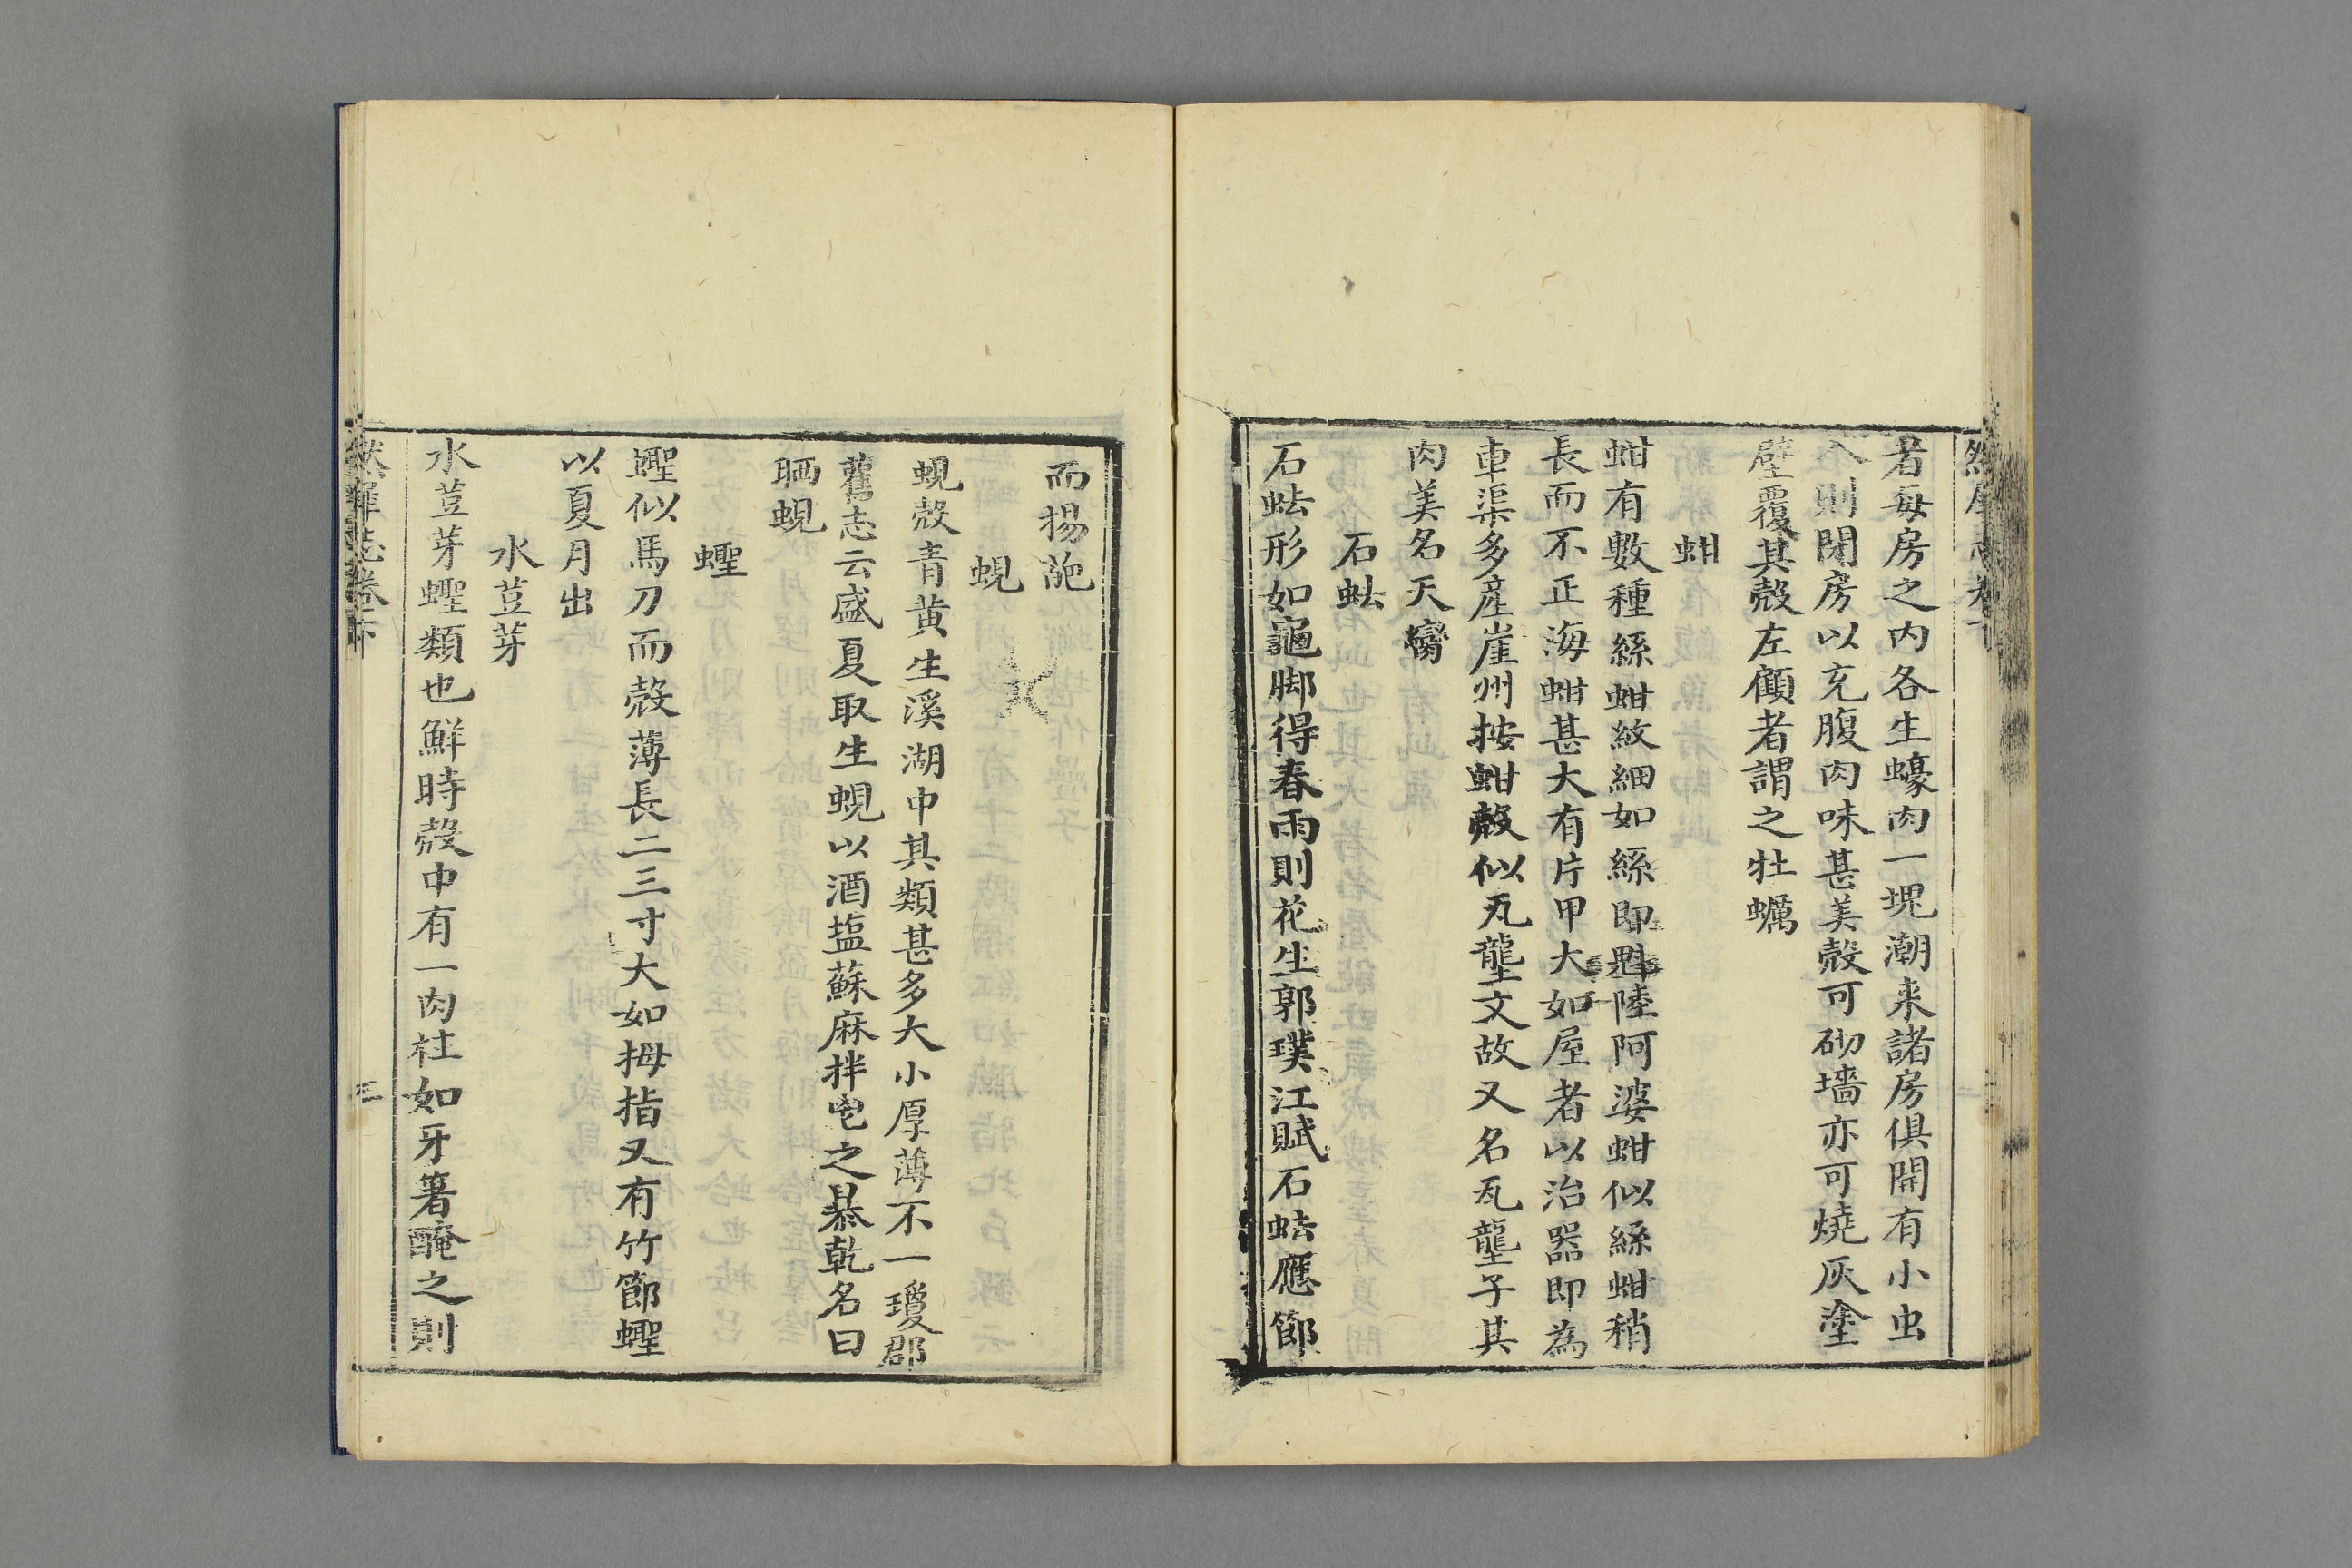 者每房之内各生蠔肉一塊潮来諸房俱開有小虫
入則閉房以充腹肉味甚美殼可砌墻亦可燒灰塗
壁覆其殼左顧者謂之牡蠣
蚶
蚶有數種絲蚶紋細如絲即魁陸阿婆蚶似絲蚶稍
長而不正海蚶甚大有片甲大如屋者以治器即為
車渠多産崖州按蚶殼似瓦壟文故又名瓦壟子其
肉美名天臠
石蚨
石蚨形如龜脚得春雨則花生郭璞江賦石蚨應節
而揚葩
蜆
蜆殼青黄生溪湖中其類甚多大小厚薄不一瓊郡
舊志云盛夏取生蜆以酒塩蘇麻拌
之暴乾名曰
晒蜆
蟶
蟶似馬刀而殼薄長二三寸大如拇指又有竹節蟶
以夏月出
水荳芽
水荳芽蟶類也鮮時殼中有一肉柱如牙箸醃之則
然犀志卷下